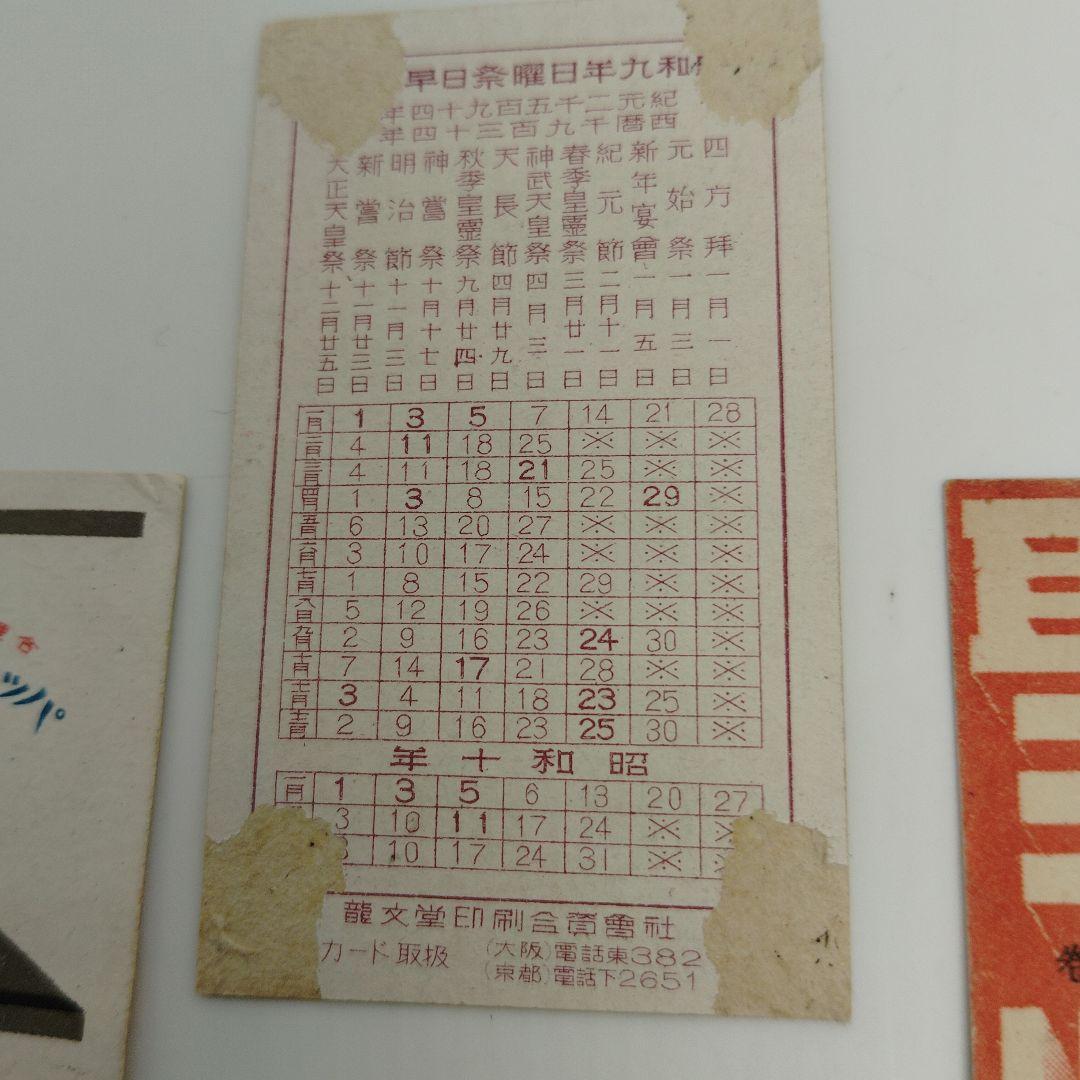 和九年日曜祭日早
紀元二千五百九十四年
西暦千九百三十四年
四方拜 一月一日
元始祭 一月三日
新年宴會 一月五日
紀元節 二月十一日
春季皇靈祭 三月廿一日
神武天皇祭 四月三日
天長節 四月廿九日
秋季皇靈祭 九月廿四日
神嘗祭 十月十七日
明治節 十一月三日
新嘗祭 十一月廿三日
大正天皇祭 十二月廿五日
一月 1 3 5 7 14 21 28
二月 4 11 18 25 ※ ※ ※
三月 4 11 18 21 25 ※ ※
四月 1 3 8 15 22 29 ※
五月 6 13 20 27 ※ ※ ※
六月 3 10 17 24 ※ ※ ※
七月 1 8 15 22 29 ※ ※
八月 5 12 19 26 ※ ※ ※
九月 2 9 16 23 24 30 ※
十月 7 14 17 21 28 ※ ※
十一月 3 4 11 18 23 25 ※
十二月 2 9 16 23 25 30 ※
昭和十年
一月 1 3 5 6 13 20 27
3 10 11 17 24 ※ ※
3 10 17 24 31 ※ ※
龍文堂印刷合資會社
カード取扱
(大阪)電話東382
(京都)電話下2651
ッパ
巻